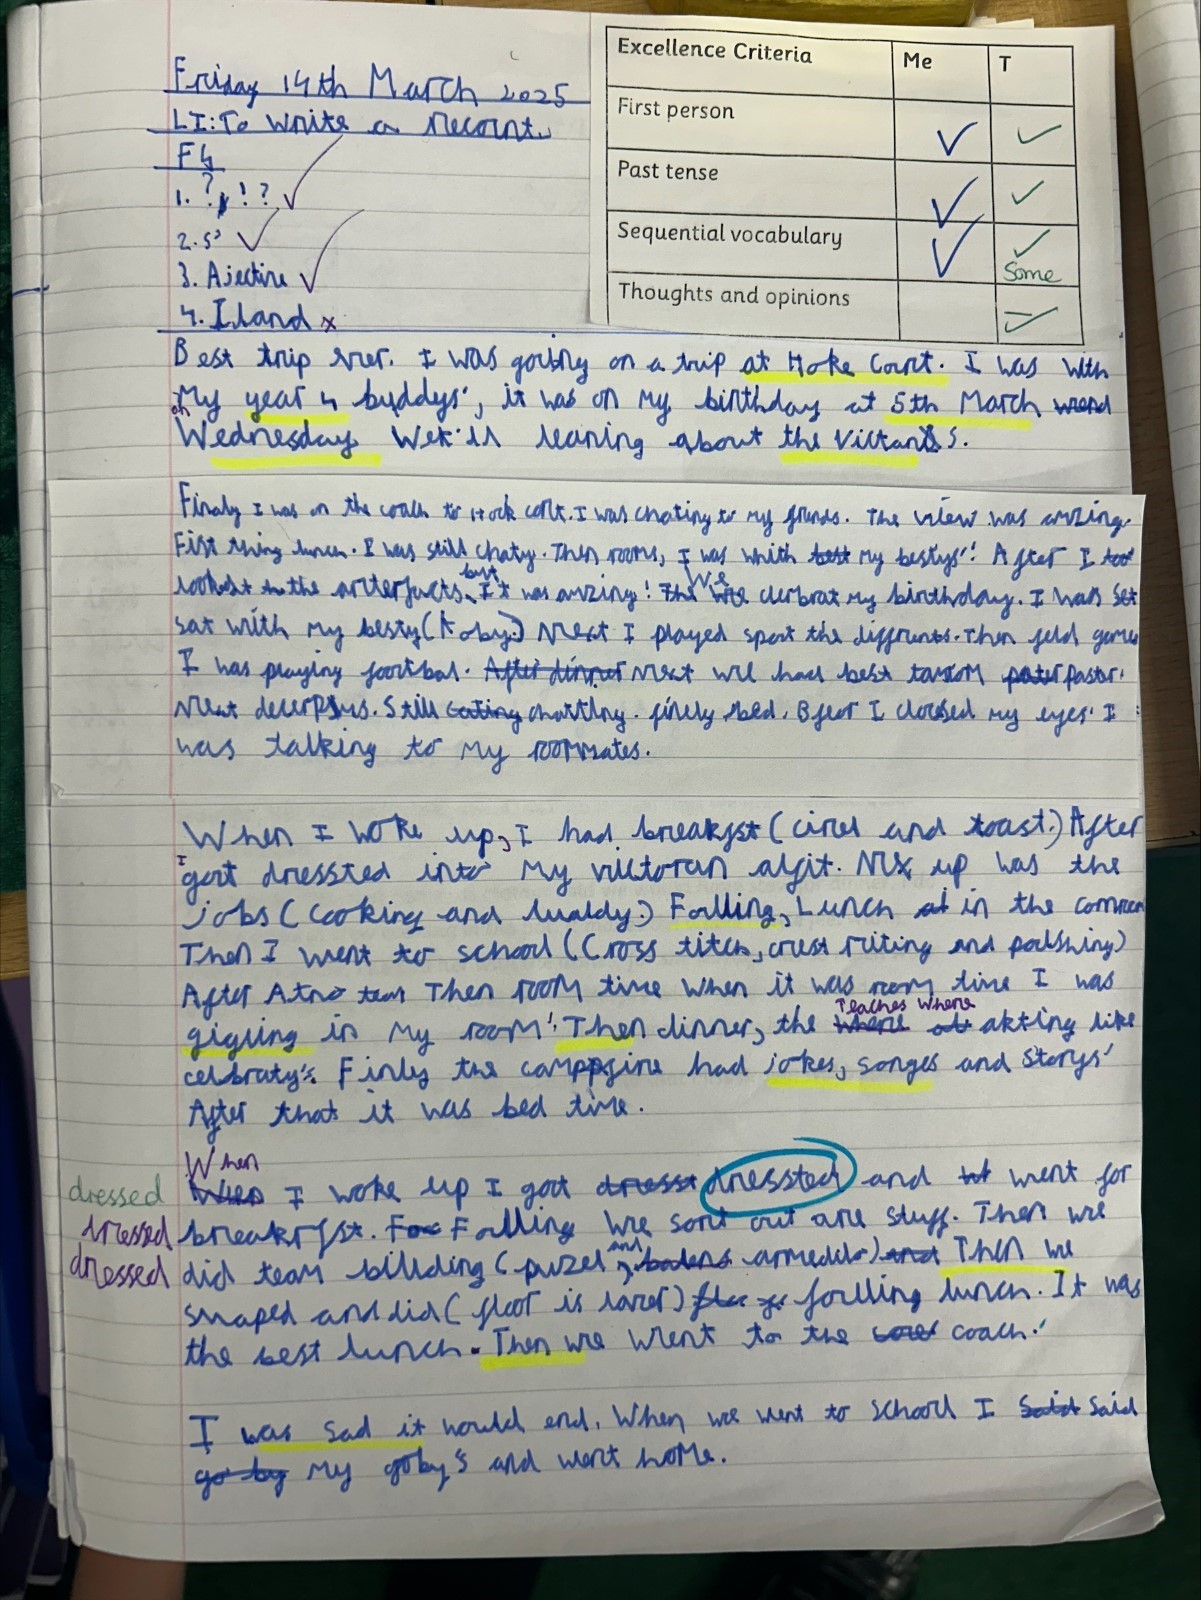 Friday 14th March 2025
LI: To write a recont.
F4
1. ? , ! ?
2. s'
3. Ajective
4. Iland x
Excellence Criteria Me T
First person ✓ ✓
Past tense ✓ ✓
Sequential vocabulary ✓ ✓ Some
Thoughts and opinions ✓
Best trip ever. I was goving on a trip at Hoke Cont. I was with
My year 4 buddys', it was on My birthday at 5th March
on Wednesday Wek'll leaning about the Victans.
Finaly I was on the coach to Hock cort. I was chating to my frends. The view was amzing.
Fist thing lunch. I was still chaty. Then rooms, I was whith best my bestys'! After I too
looked to the arterfacts, but It was amzing! The We clerbrat my birthday. I was set
sat with my besty (Koby.) Next I played spot the diffrunts. Then feld games
I was playing footbal. After dinner Next we had best tomom pater pastor.
Next decerps. Still chatting. finely bed. Bfeor I cloused my eyes I
was talking to my roommates.
When I woke up, I had breakfst (cirel and toast.) After
I gort dressted into My victoran alfit. Nex up was the
jobs (Cooking and lualdy.) Folling, Lunch at in the common
Then I went to school (Cross titch, crust riting and polshing)
After Then room time When it was room time I was
gigling in My room'. Then dinner, the Teaches where akting like
celbraty's. Finly the campfire had jokes, songes and storys'
After that it was bed time.
When
I woke up I gort dresst dressted and went for
dressed
breakfst. For Folling We sort out are stuff. Then we
dressed
did team billding (puzel, and armedilo) and Then we
dressed
shaped and did (floor is larer) folling lunch. It was
the best lunch. Then we went to the coach.
I was sad it would end. When we went to school I Said Said
go by My goby's and went home.